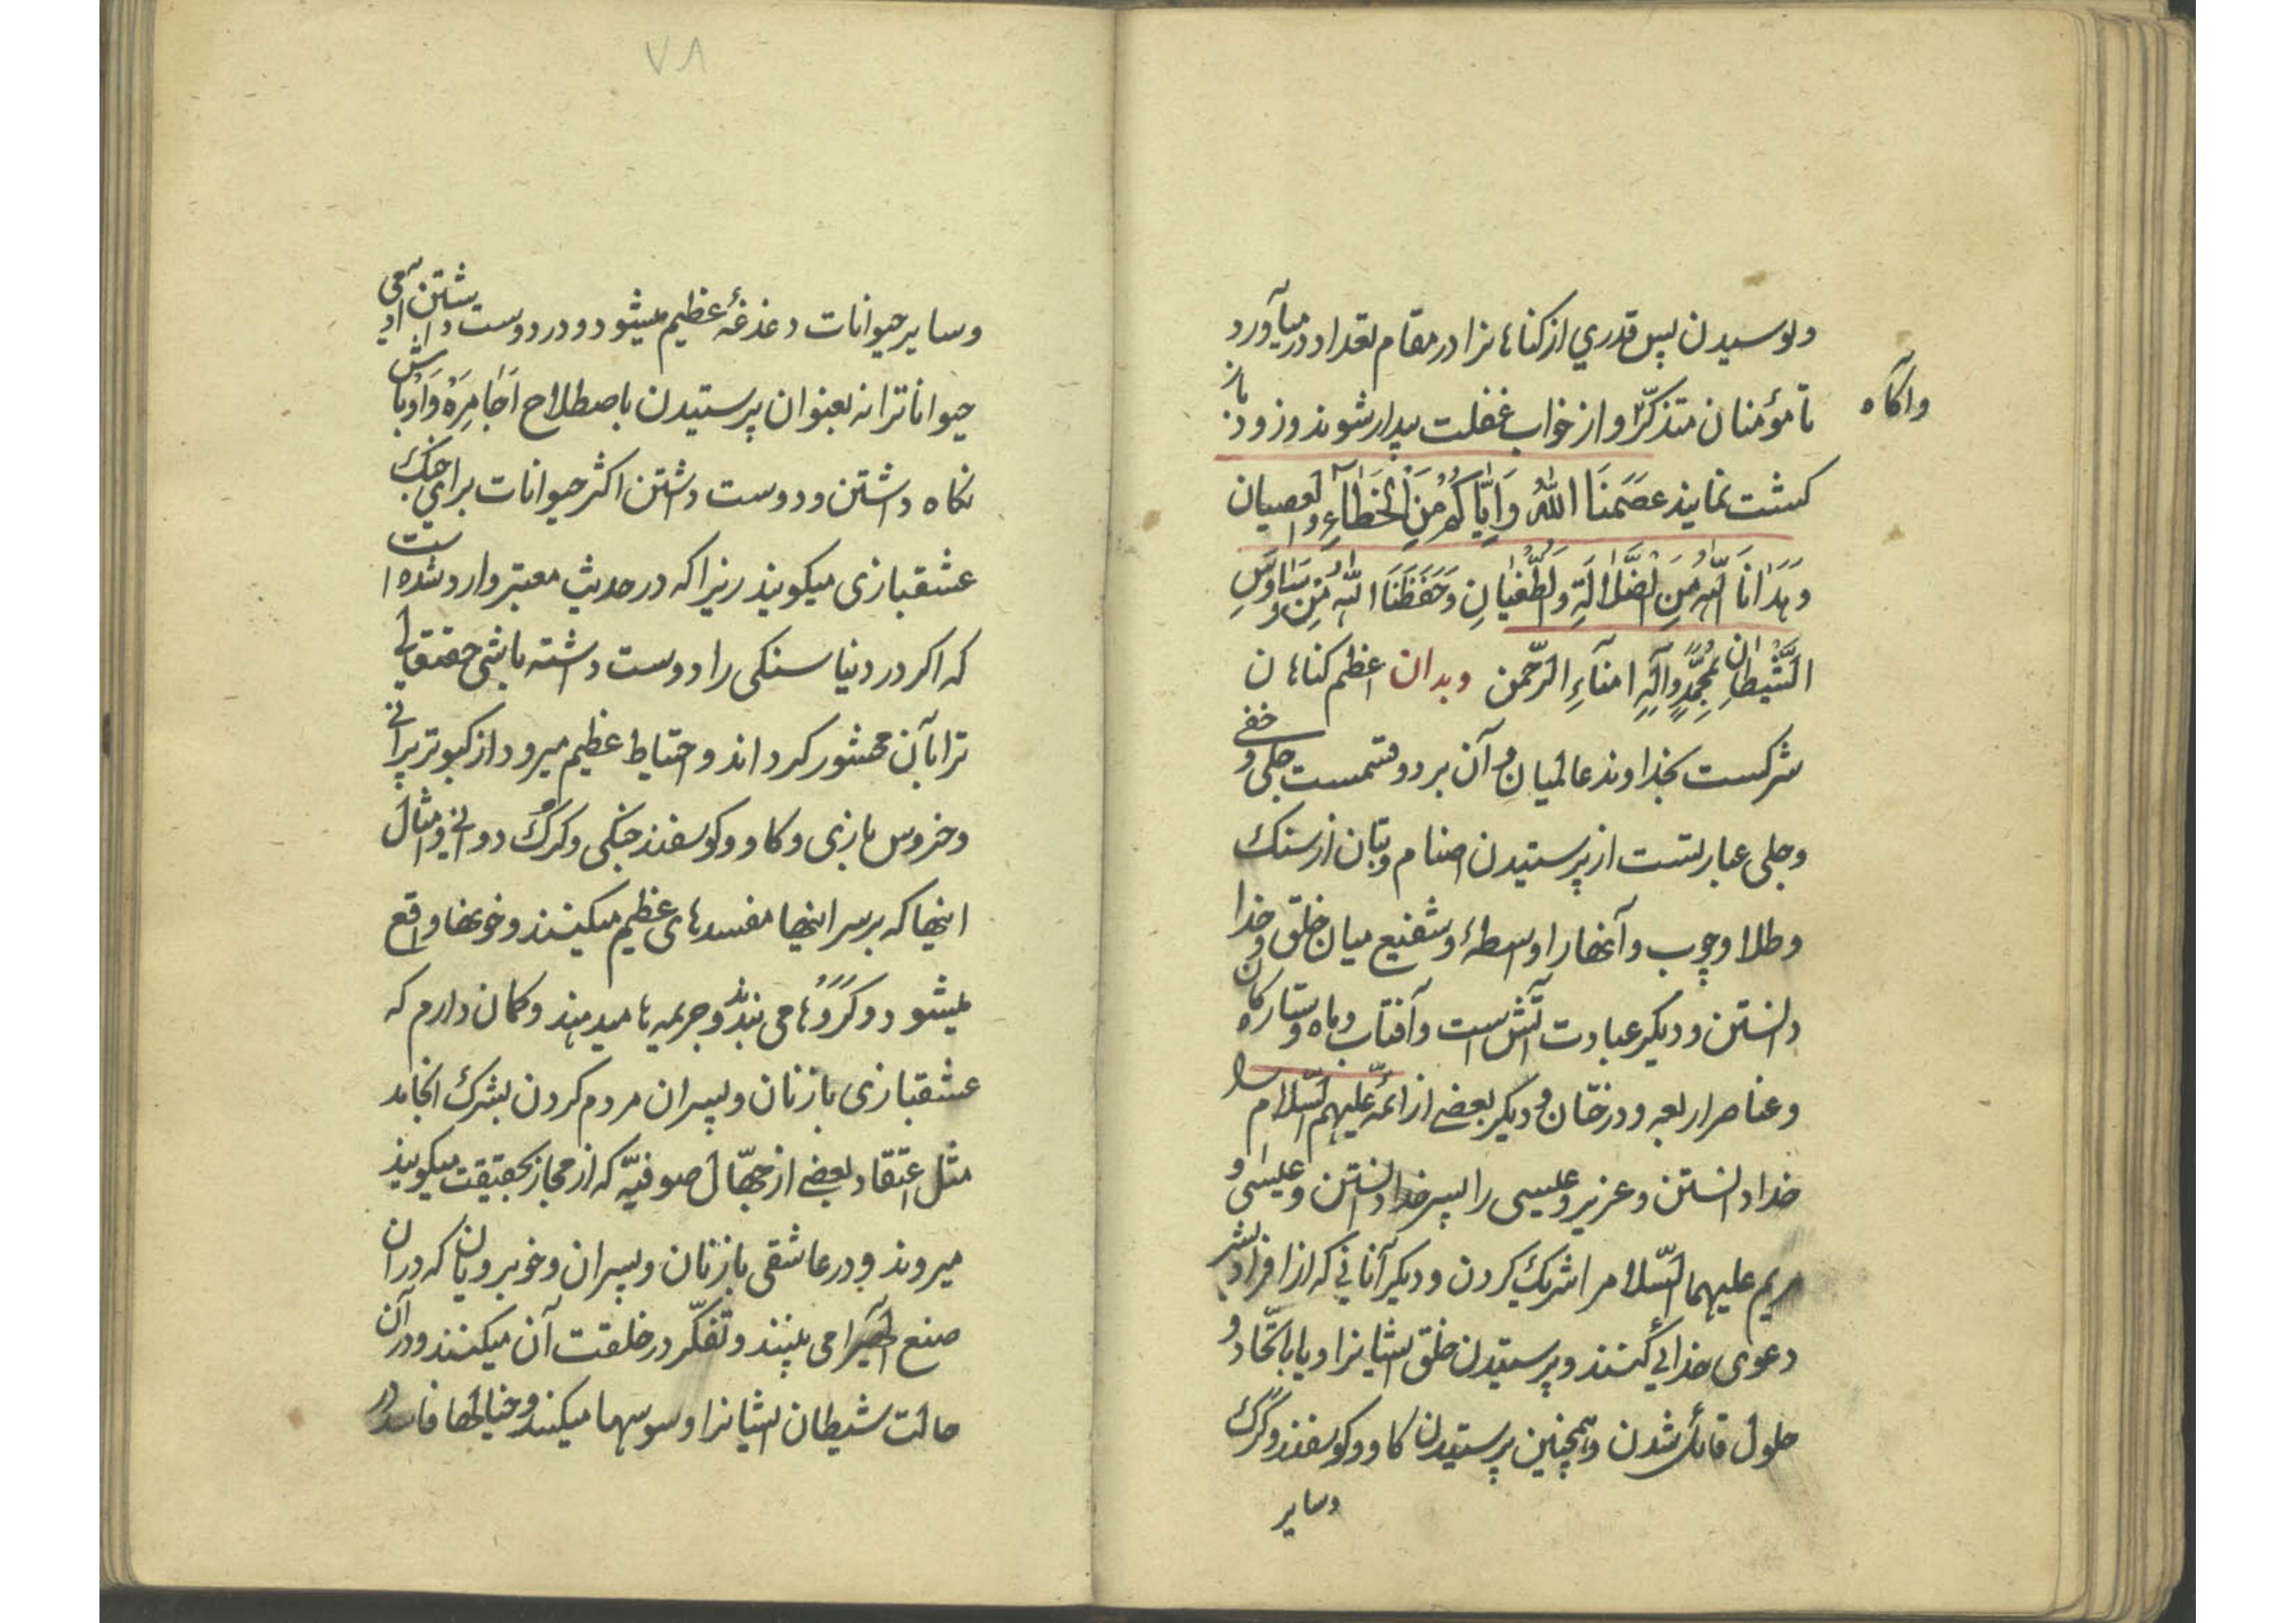 ولوسیدن پس قدری از کناهانرا در مقام تعداد درمیآورد
تا مؤمنان متذکّر و از خواب غفلت بیدار شوند و زود باز
واکاه
کشت نمایند عَصَمَنَا اللهُ وَاِیَّاکُمْ مِنَ الْخَطَاءِ والعصیان
وَهَدَانَا اللّهُ مِنَ الضَّلَالَةِ وَالطُّغْیَانِ وَحَفِظَنَا اللّهُ مِنْ وَسَاوِسِ
الشَّیْطَانِ بِمُحَمَّدٍ وَآلِهِ اُمَنآءِ الرَّحْمن وبدان اعظم کناهان
شرکست بخداوند عالمیان و آن بر دو قسمست جلی و خفی
وجلی عبارتست از پرستیدن اصنام وبتان از سنک
وطلا وچوب وآنها را واسطهٔ وشفیع میان خلق وخدا
دانستن ودیکر عبادت آتش است وآفتاب وماه وستارکان
وعناصر اربعه ودرختان ودیکر بعضی از ائمّه علیهم السّلام را
خدا دانستن وعزیر وعیسی را پسر خدا دانستن وعیسی و
مریم علیهما السّلام را شریک کردن ودیکر آنانی که از افراد بشر
دعوی خدائی کنند وپرستیدن خلق ایشانرا ویا باتّحاد و
حلول قائل شدن وهمچنین پرستیدن کاو وکوسفند وکُرک
وسایر
۷۸
وسایر حیوانات دغدغهٔ عظیم میشود ودر دوست داشتن آدمی
حیواناترا نه بعنوان پرستیدن باصطلاح اَجَامِرَهْ وَاَوْبَاش
نکاه داشتن ودوست داشتن اکثر حیوانات برای جنک
عشقبازی میکویند زیرا که در حدیث معتبر وارد شده است
که اکر در دنیا سنکی را دوست داشته باشی حقتعالی
ترا با آن محشور کرداند واحتیاط عظیم میرود از کبوتر پرانی
وخروس بازی وکاو وکوسفند جنکی وکرک دوانی وامثال
اینها که بر سر اینها مفسدهای عظیم میکنند وخونها واقع
میشود وکَرَوْها می بندند وجریمه ها میدهند وکمان دارم که
عشقبازی با زنان وپسران مردم کردن بشرک انجامد
مثل اعتقاد بعضی از جهّال صوفیّه که از مجاز بحقیقت میکویند
میروند ودر عاشقی با زنان وپسران وخوبرویان که در ان
صنع الهیرا می بینند وتفکّر در خلقت آن میکنند ودر آن
حالت شیطان ایشانرا وسوسها میکند وخیالها فاسد در